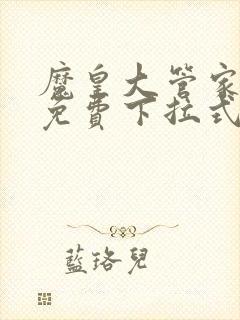 魔皇大管家
免費下拉式
藍珞兒